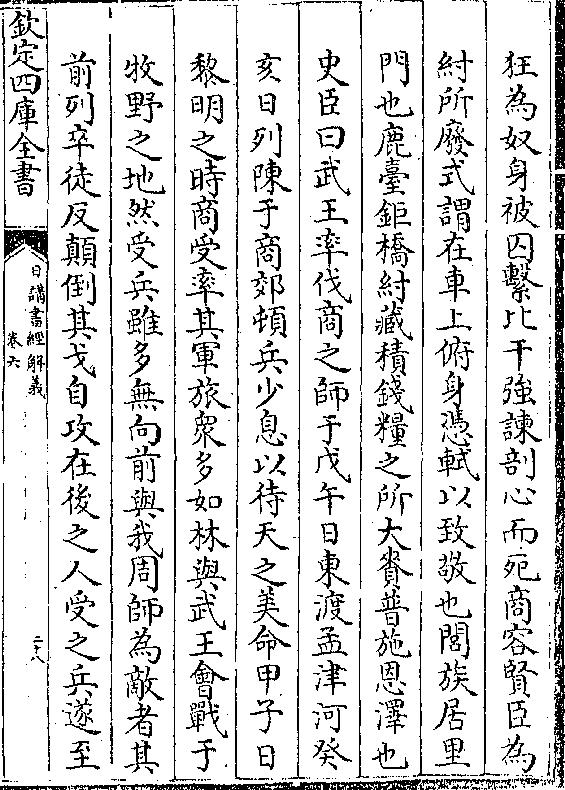 狂為奴身被囚繫比干強諫剖心而死商容賢臣為
紂所廢式謂在車上俯身憑軾以致敬也閭族居里
門也鹿臺鉅橋紂藏積錢糧之所大賚普施恩澤也
史臣曰武王率伐商之師于戊午日東渡孟津河癸
亥日列陳于商郊頓兵少息以待天之美命甲子日
黎明之時商受率其軍旅衆多如林與武王會戰于
牧野之地然受兵雖多無向前與我周師為敵者其
前列卒徒反顛倒其戈自攻在後之人受之兵遂至
欽定四庫全書
日講書經解義
卷六
二十八